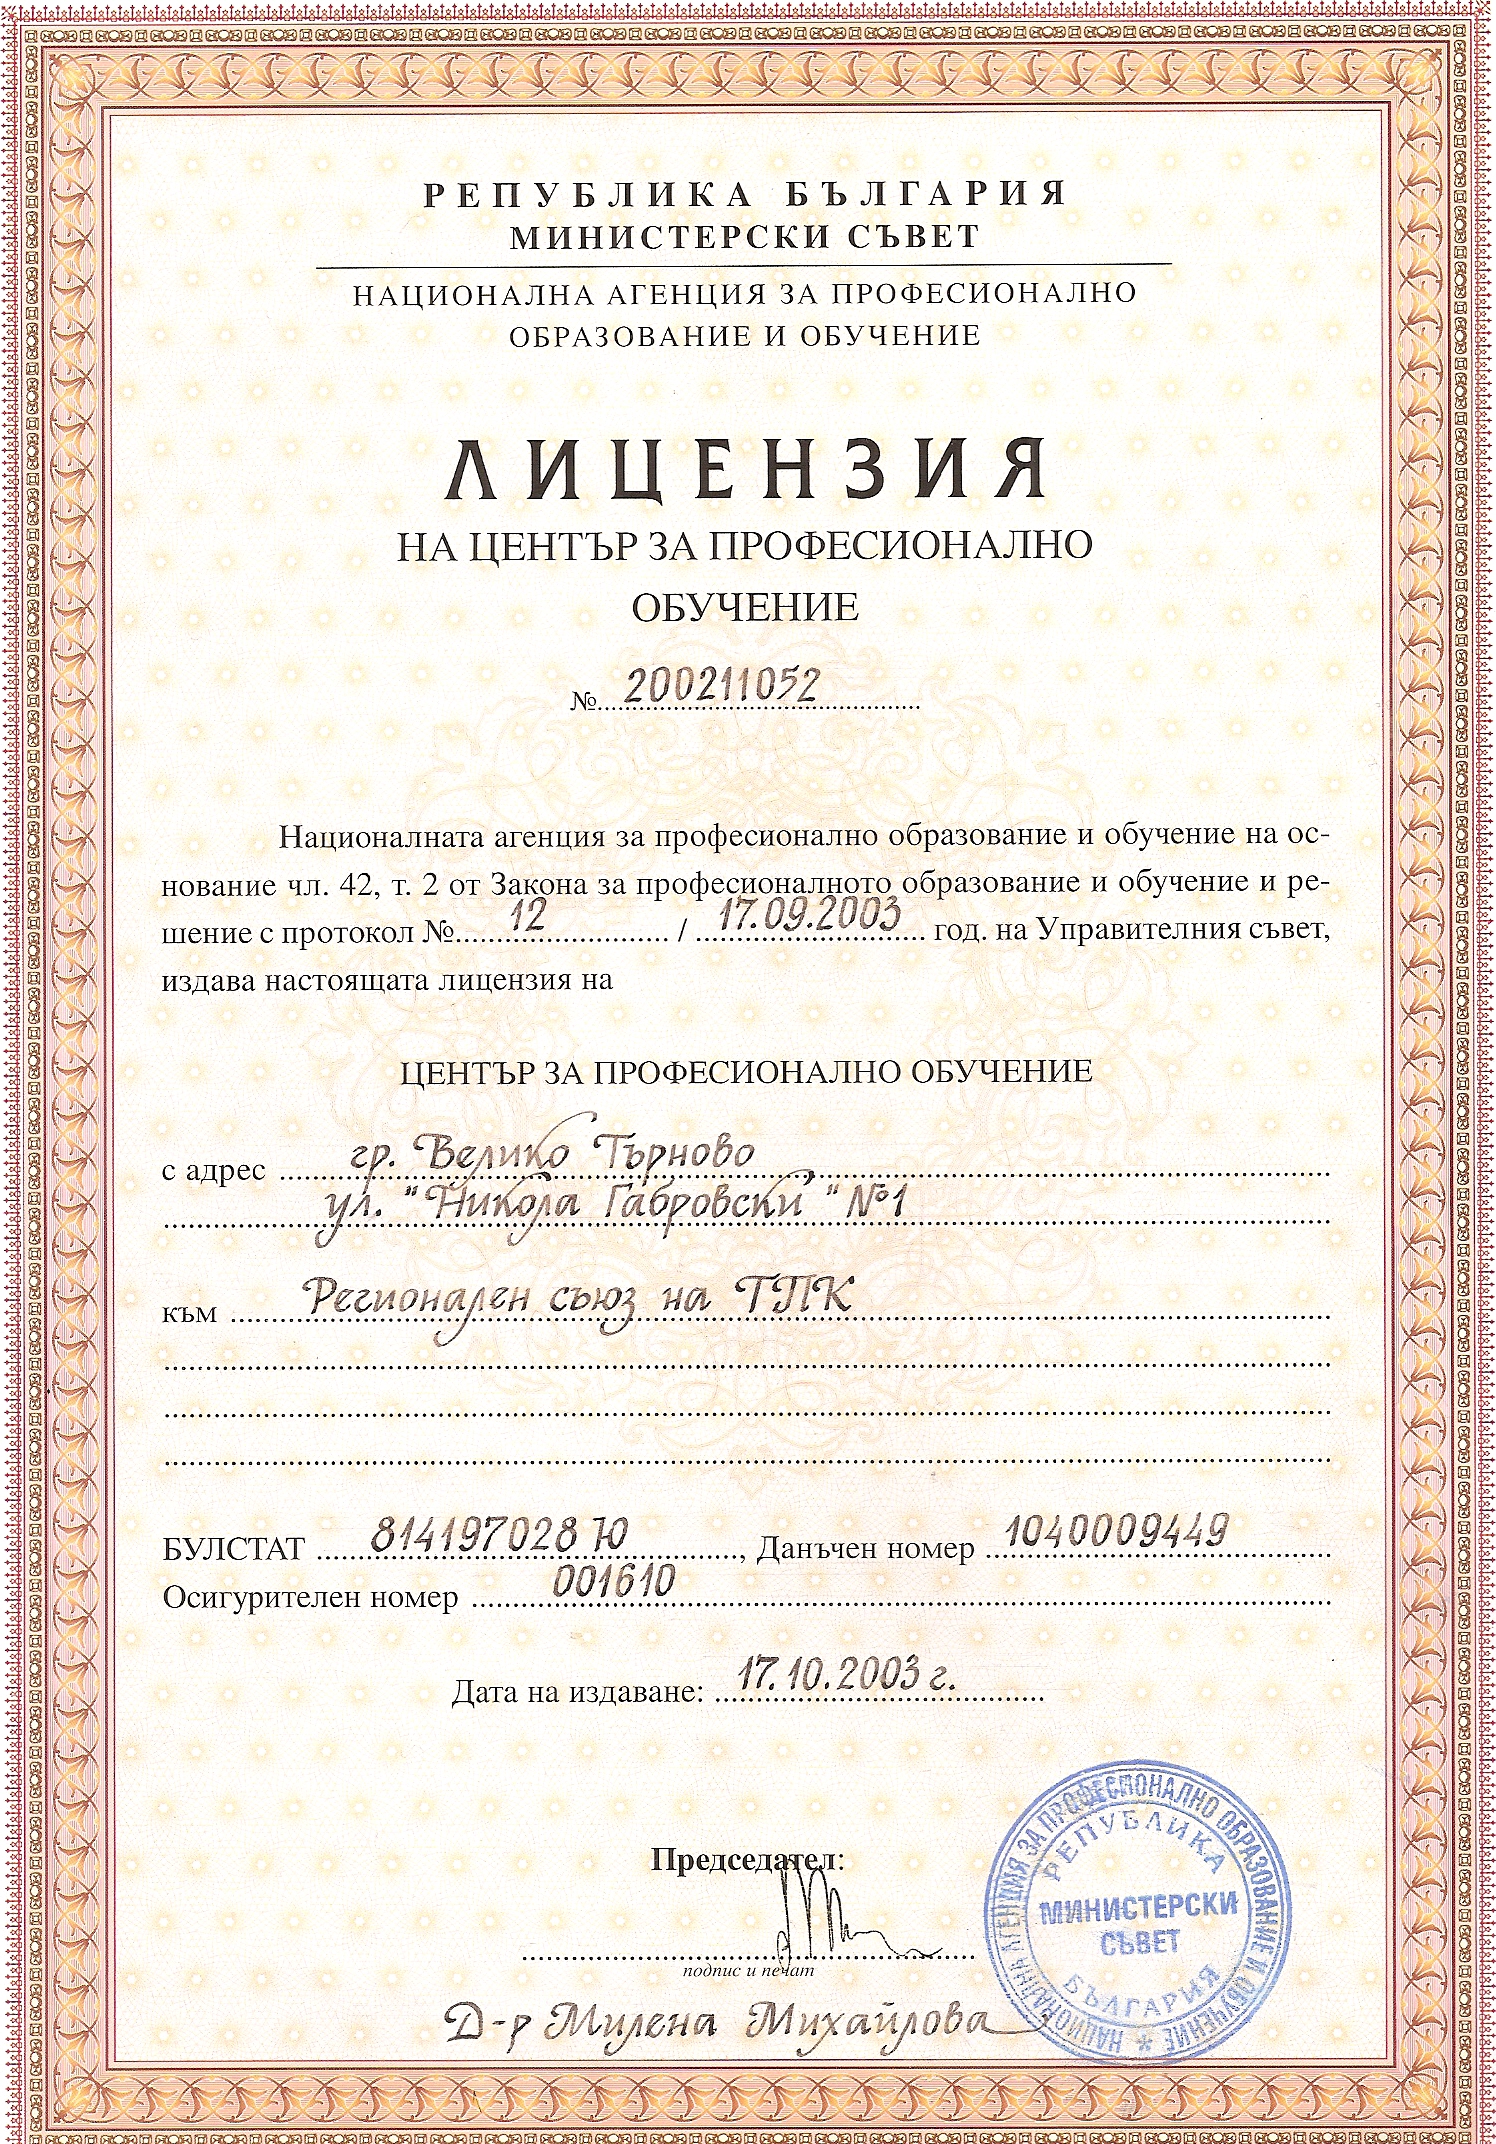 РЕПУБЛИКА БЪЛГАРИЯ
МИНИСТЕРСКИ СЪВЕТ
НАЦИОНАЛНА АГЕНЦИЯ ЗА ПРОФЕСИОНАЛНО
ОБРАЗОВАНИЕ И ОБУЧЕНИЕ
ЛИЦЕНЗИЯ
НА ЦЕНТЪР ЗА ПРОФЕСИОНАЛНО
ОБУЧЕНИЕ
№ 200211052
Националната агенция за професионално образование и обучение на ос-
нование чл. 42, т. 2 от Закона за професионалното образование и обучение и ре-
шение с протокол № 12 / 17.09.2003 год. на Управителния съвет,
издава настоящата лицензия на
ЦЕНТЪР ЗА ПРОФЕСИОНАЛНО ОБУЧЕНИЕ
с адрес гр. Велико Търново
ул. "Никола Габровски" №1
към Регионален съюз на ТПК
БУЛСТАТ 814197028 Ю, Данъчен номер 1040009449
Осигурителен номер 001610
Дата на издаване: 17.10.2003 г.
Председател:
подпис и печат
Д-р Милена Михайлова
НАЦИОНАЛНА АГЕНЦИЯ ЗА ПРОФЕСИОНАЛНО ОБРАЗОВАНИЕ И ОБУЧЕНИЕ
РЕПУБЛИКА
МИНИСТЕРСКИ
СЪВЕТ
БЪЛГАРИЯ